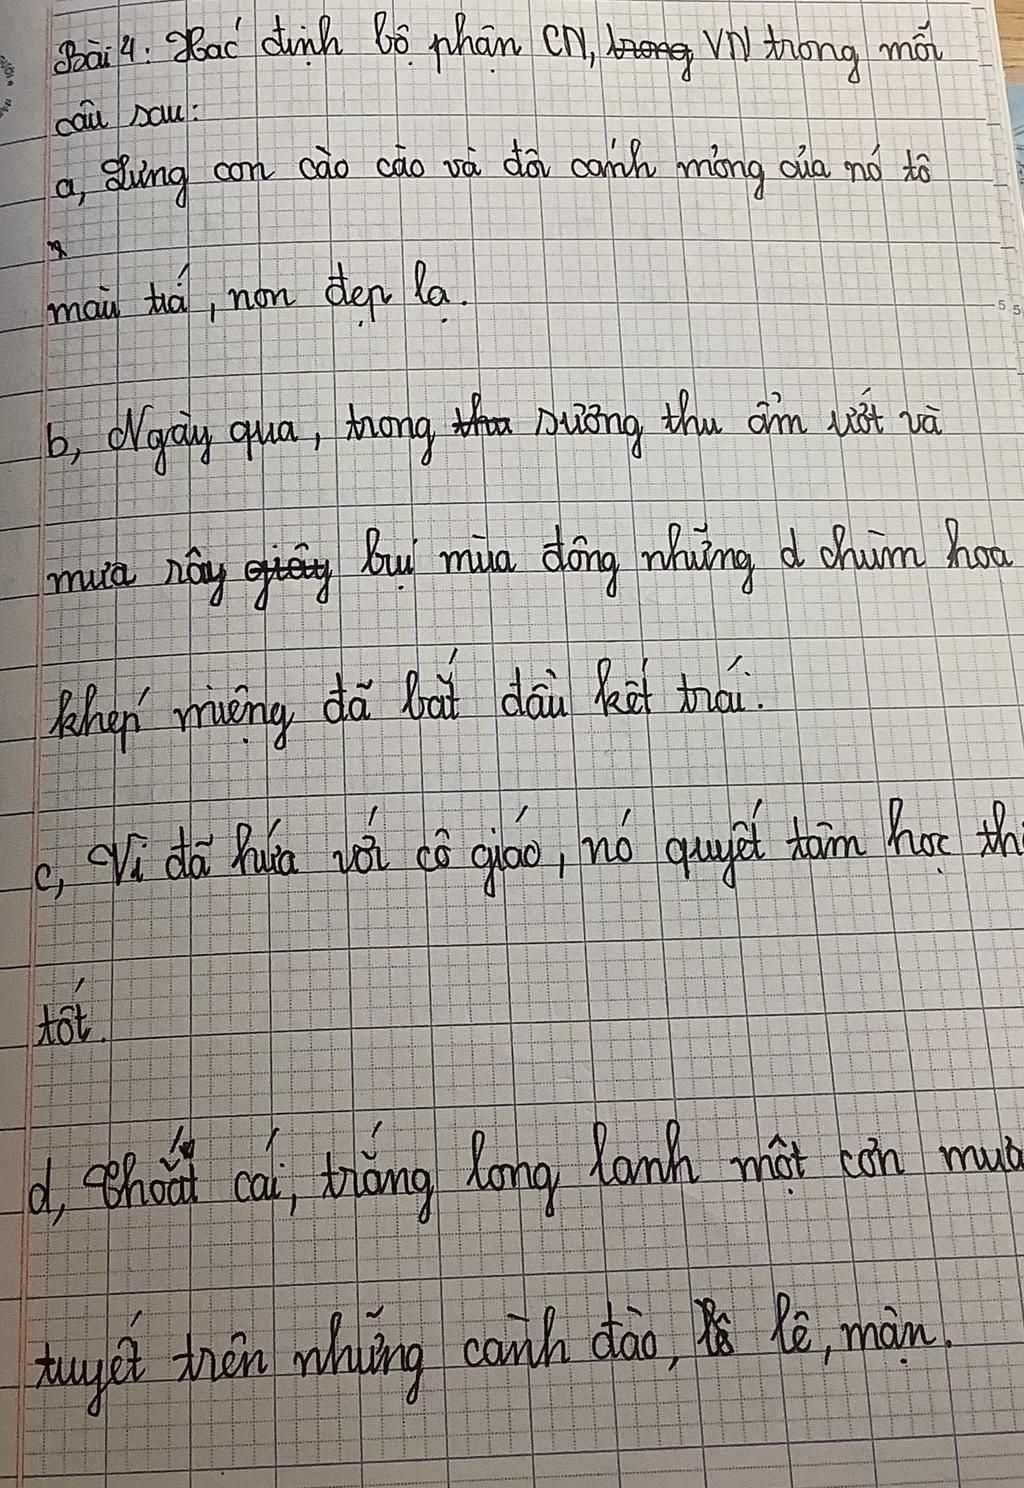 Bài 4: Xác định bộ phận CN, trong VN trong mỗi
câu sau:
a, Lưng con cào cào và đôi cánh mỏng của nó tô
màu tiá, non đẹp lạ.
b, Ngày qua, trong thu sương thu ẩm ướt và
mưa rây giây bụi mùa đông những d chùm hoa
khép miệng đã bắt đầu kết trái.
c, Vì đã hứa với cô giáo, nó quyết tâm học
tốt.
d, Thoắt cái, trắng long lanh một cơn mưa
tuyết trên những cành đào, lê, mận.